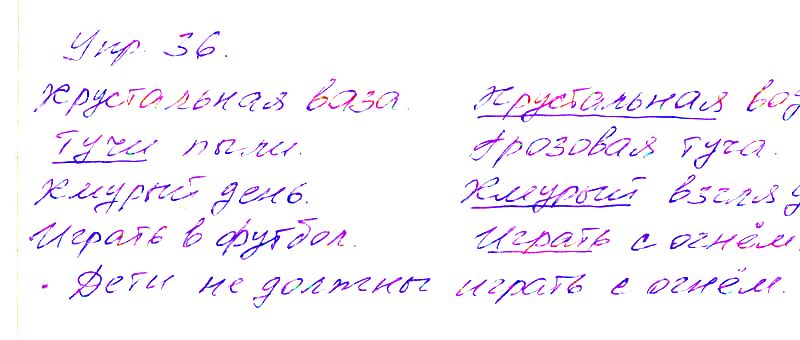 Упр. 36.
Хрустальная ваза. Хрустальная
Тучи пыли. Грозовая туча.
Хмурый день. Хмурый взгляд
Играть в футбол. Играть с огнём.
Дети не должны играть с огнём.